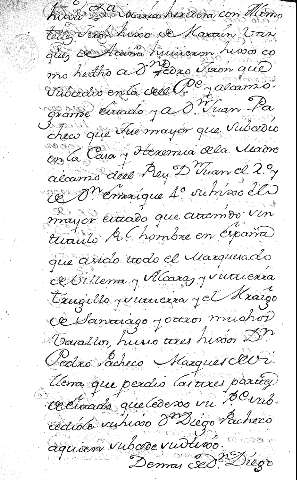 hubo Dª Maria herdera con Alfonso
tellez Giron hixo de Martin Vaz
quez de Acuña hubieron hixos co
mo he dho a Dⁿ Pedro Giron que
subcedio en la del Pᵉ y alcanço
grande estado y a Dⁿ Juan Pa
checo que fue mayor que subcedio
en la Casa y Herencia de la Madre
alcanço del Rey Dⁿ Juan el 2º y
de Dⁿ Enrrique 4º su hixo el
mayor estado que a tenido sin
titulo R.¹ hombre en España
que a sido todo el Marquesado
de Villena y Alcaraz y su tierra
trugillo y su tierra y el Mrazgo
de Santiago y otros muchos
Vasallos, hubo tres hixos Dⁿ
Pedro Pacheco Marques de Vi
llena, que perdio las tres partes
de estado, que le dexo su Pᵉ sub
cediole su hixo Dⁿ Diego Pacheco
a quien subcede su hixo.
Demas de Dⁿ Diego